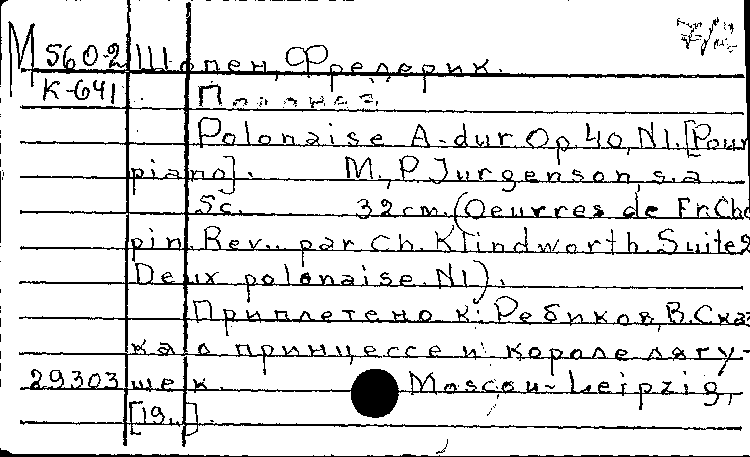 М 560-2 Шопен, Фредерик.
К-641 Полонез
Polonaise A-dur Op 40, N1. [Pour
piano]. M., P Jurgenson, s.a
5c. 32 cm. (Oeuvres de Fr. Cho
pin. Rev.. par Ch. Klindworth. Suite 2
Deux polonaise. N1).
Приплетено к: Ребиков, В. Сказ
ка о принцессе и короле лягу-
29303 шек. Moscou-Leipzig,
[19..].